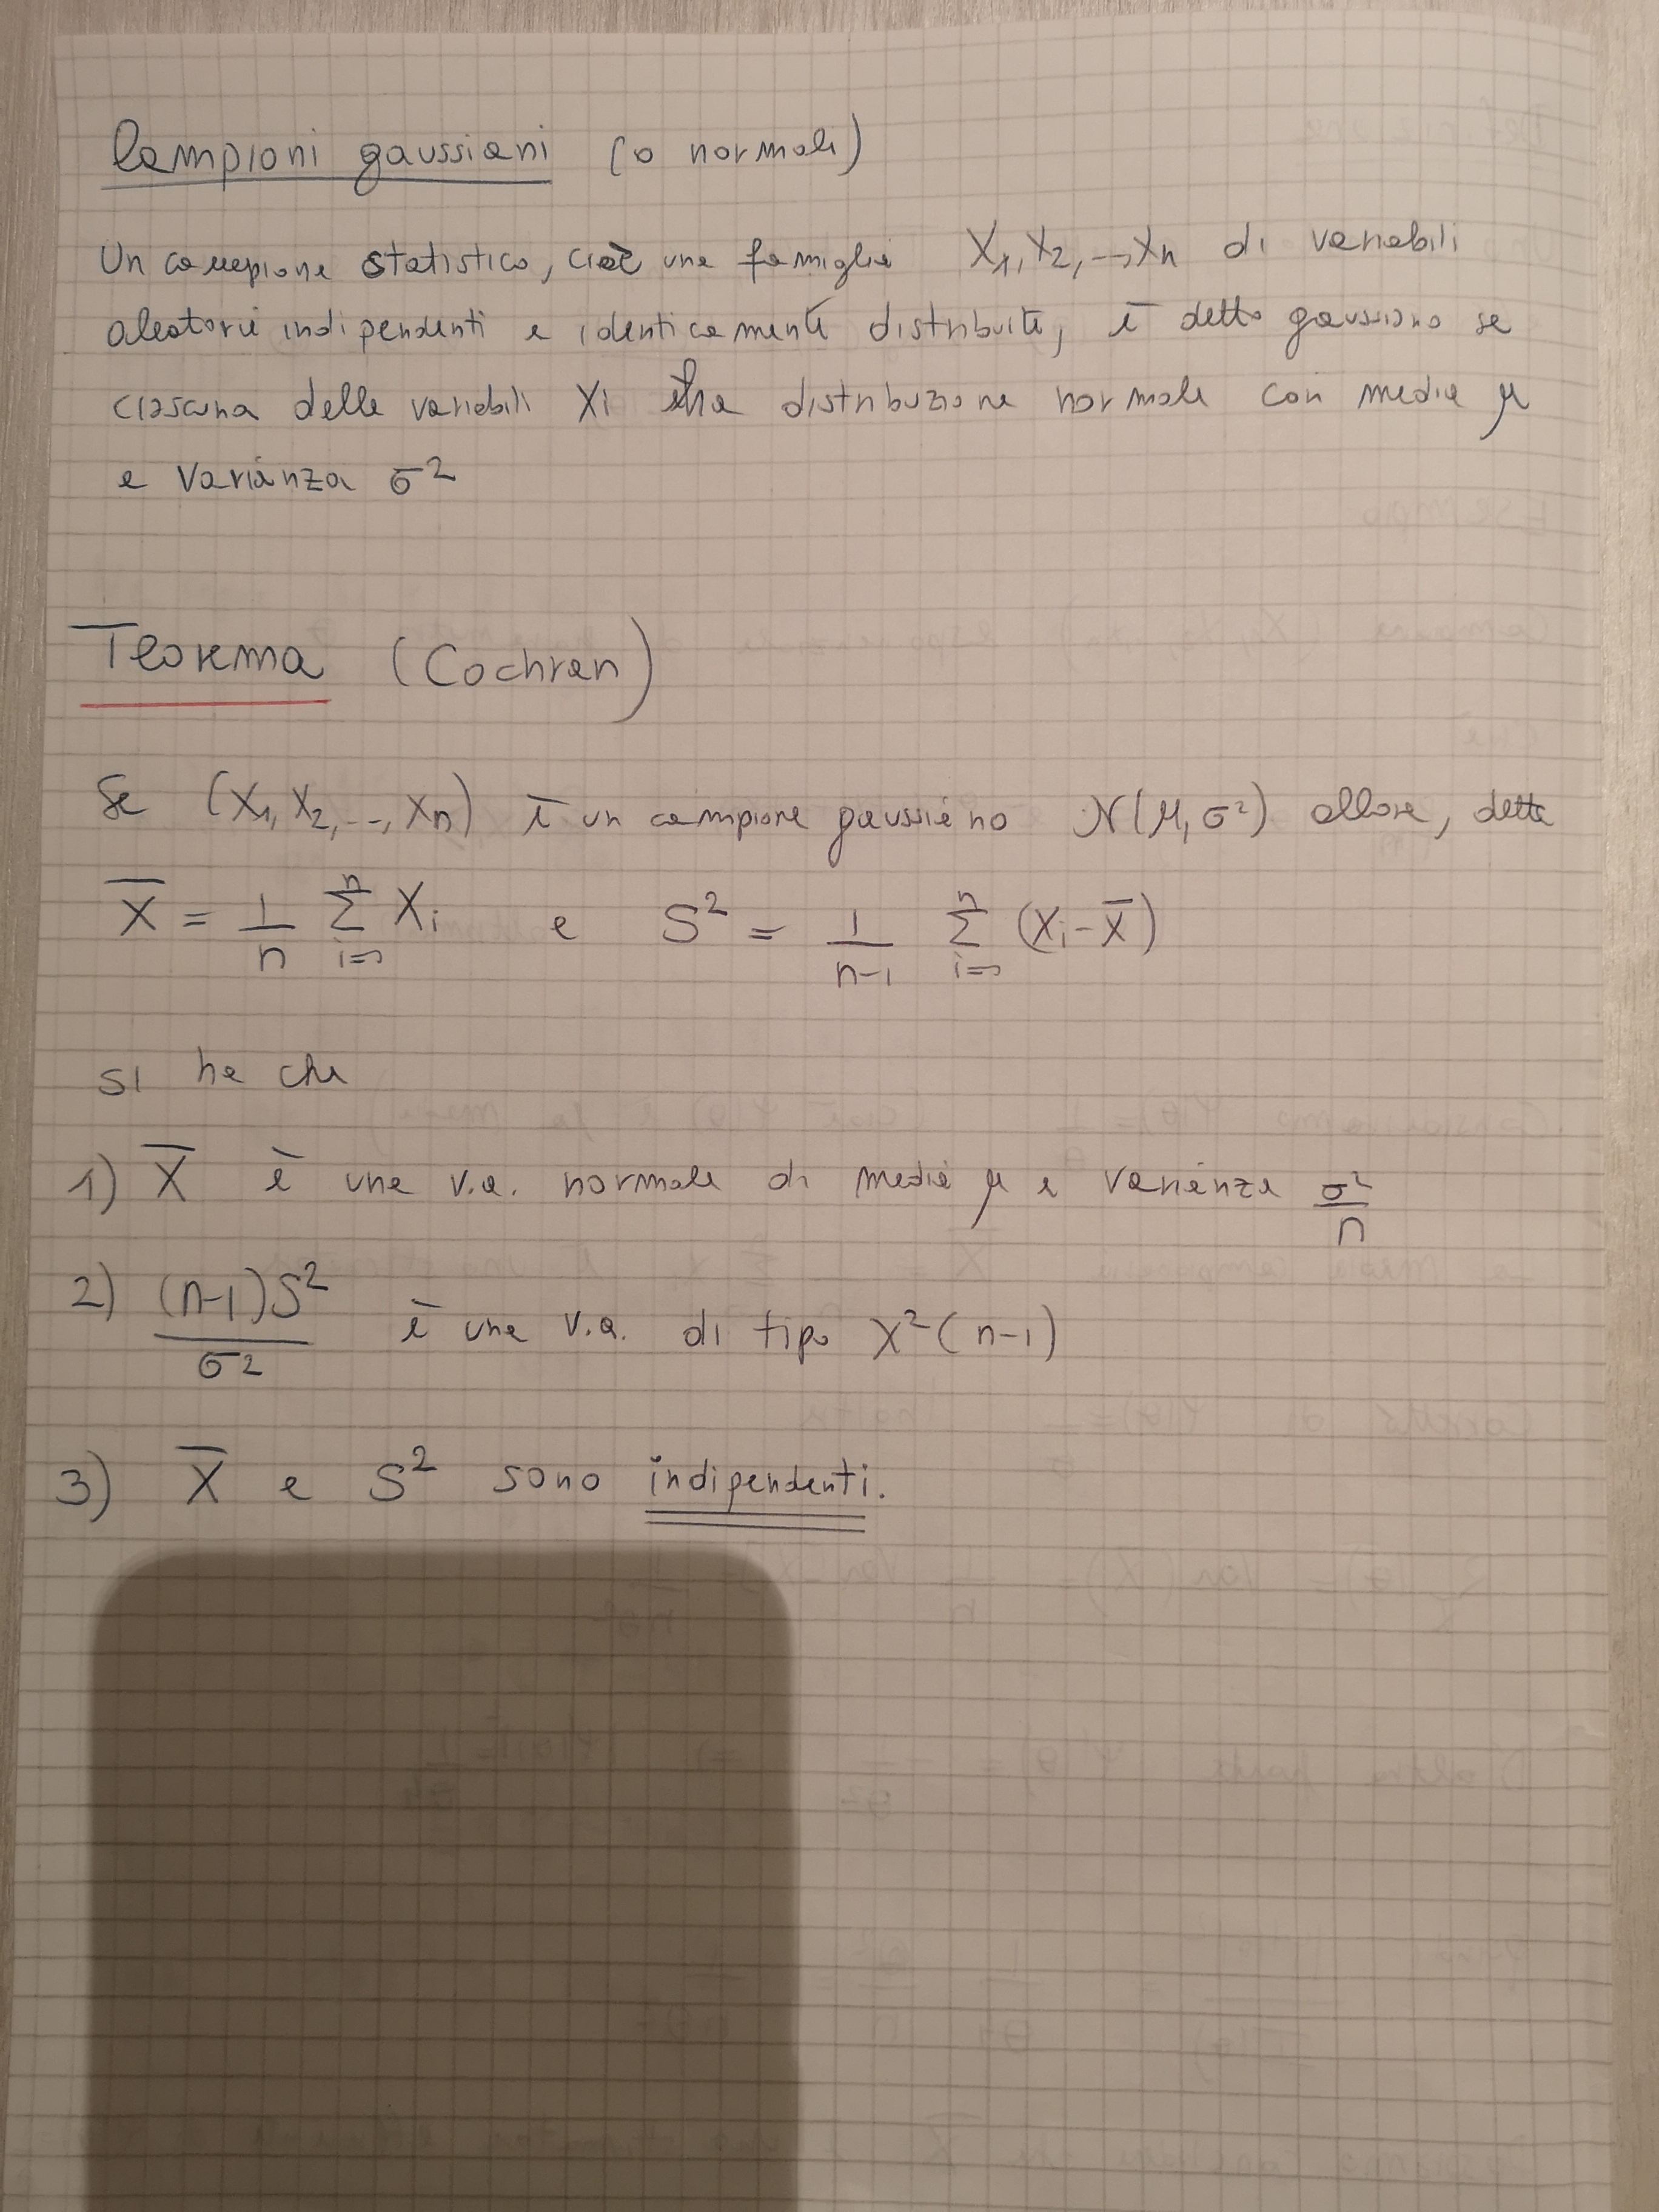 Campioni gaussiani (o normali)
Un campione statistico, cioè una famiglia X₁, X₂, .., Xn di variabili
aleatorie indipendenti e identicamente distribuite, è detto gaussiano se
ciascuna delle variabili Xi ha distribuzione normale con media μ
e varianza σ²
Teorema (Cochran)
Se (X₁, X₂, .., Xn) è un campione gaussiano N(μ, σ²) allora, dette
X̄ = 1/n Σ_{i=1}^{n} Xi e S² = 1/(n-1) Σ_{i=1}^{n} (Xi - X̄)
si ha che
1) X̄ è una v.a. normale di media μ e varianza σ²/n
2) (n-1)S²/σ² è una v.a. di tipo χ²(n-1)
3) X̄ e S² sono indipendenti.